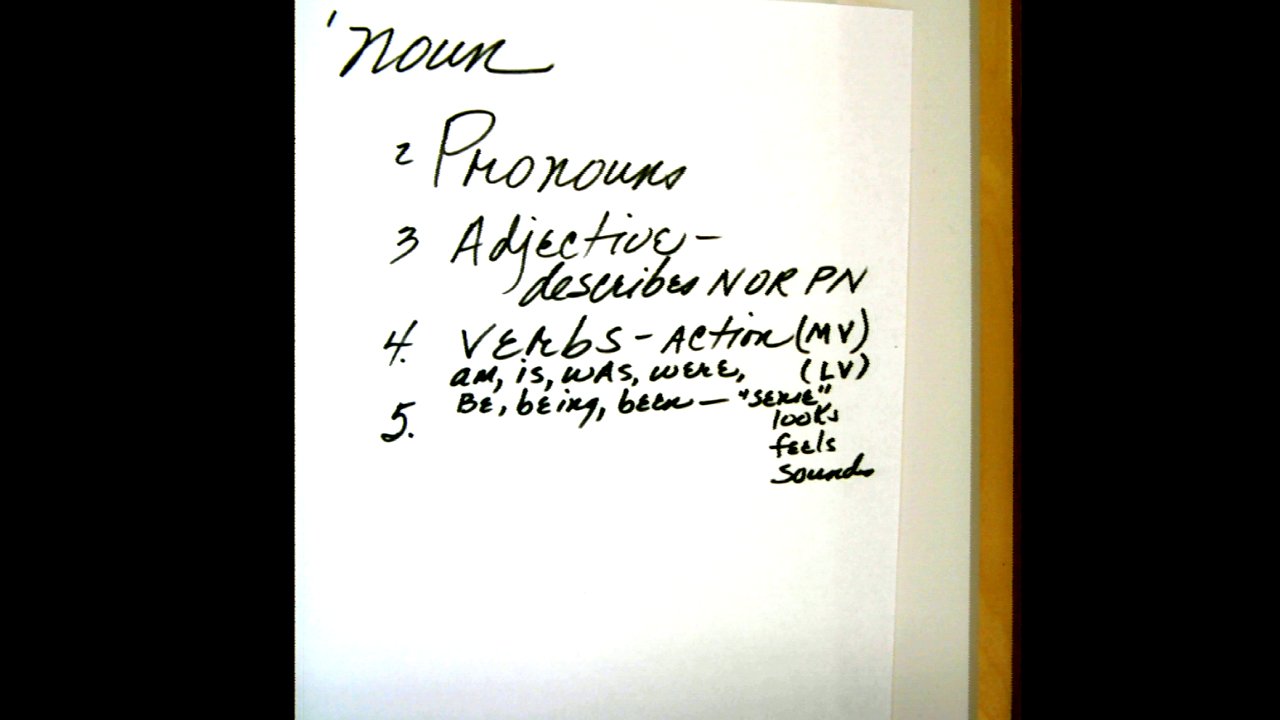 1 noun
2 Pronouns
3 Adjective -
describes N OR PN
4. Verbs - Action (MV)
am, is, was, were, (LV)
Be, being, been - "sense"
5. looks
feels
sounds